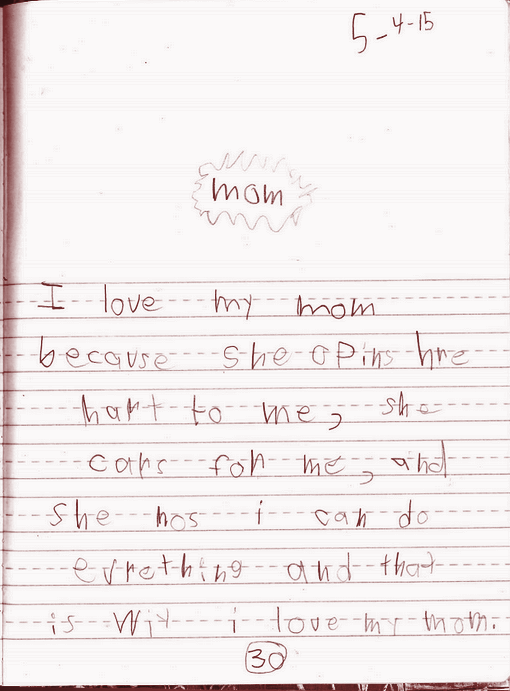 5-4-15
mom
I love my mom
because she opins hre
hart to me, she
cars for me, and
she nos i can do
evrething and that
is wiy i love my mom.
30